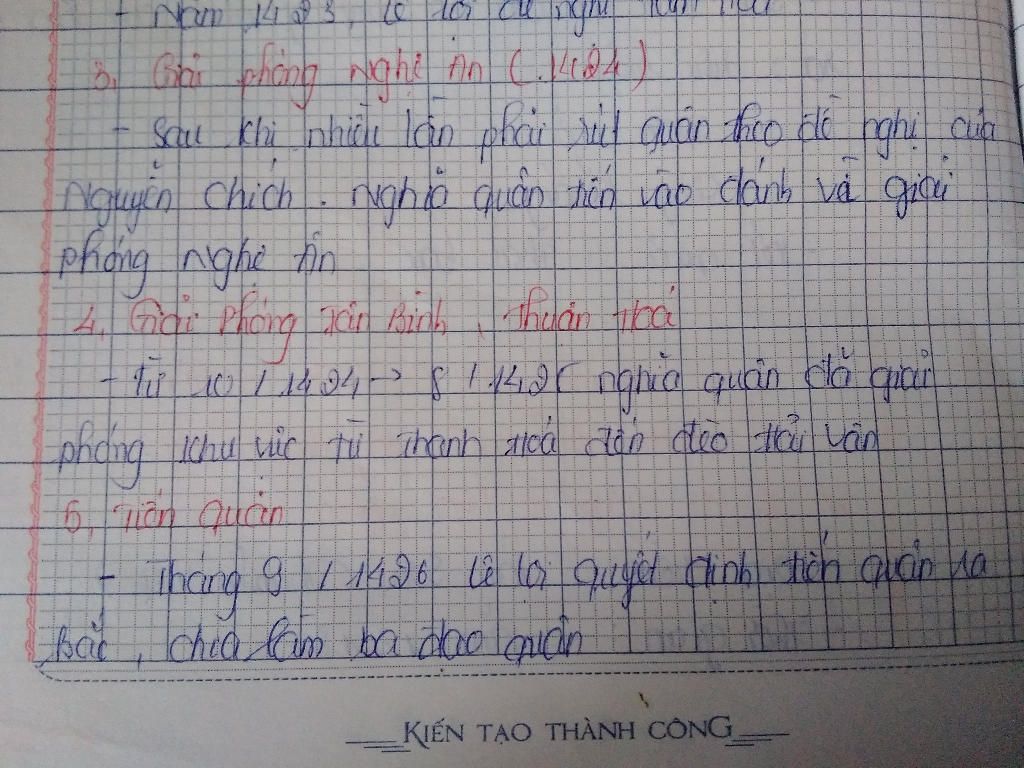 - Năm 1423, Lê Lợi đề nghị tạm hòa
3, Giải phóng Nghệ An (.1424)
- Sau khi nhiều lần phải rút quân theo đề nghị của
Nguyễn Chích. Nghĩa quân tiến vào đánh và giải
phóng Nghệ An
4, Giải phóng Tân Bình, Thuận Hoá
- Từ 10/1424 -> 8/1425 nghĩa quân đã giải
phóng khu vực từ Thanh Hoá đến đèo Hải Vân
5, Tiến quân
- Tháng 9/1426 Lê Lợi quyết định tiến quân ra
Bắc, chia làm ba đạo quân
KIẾN TẠO THÀNH CÔNG